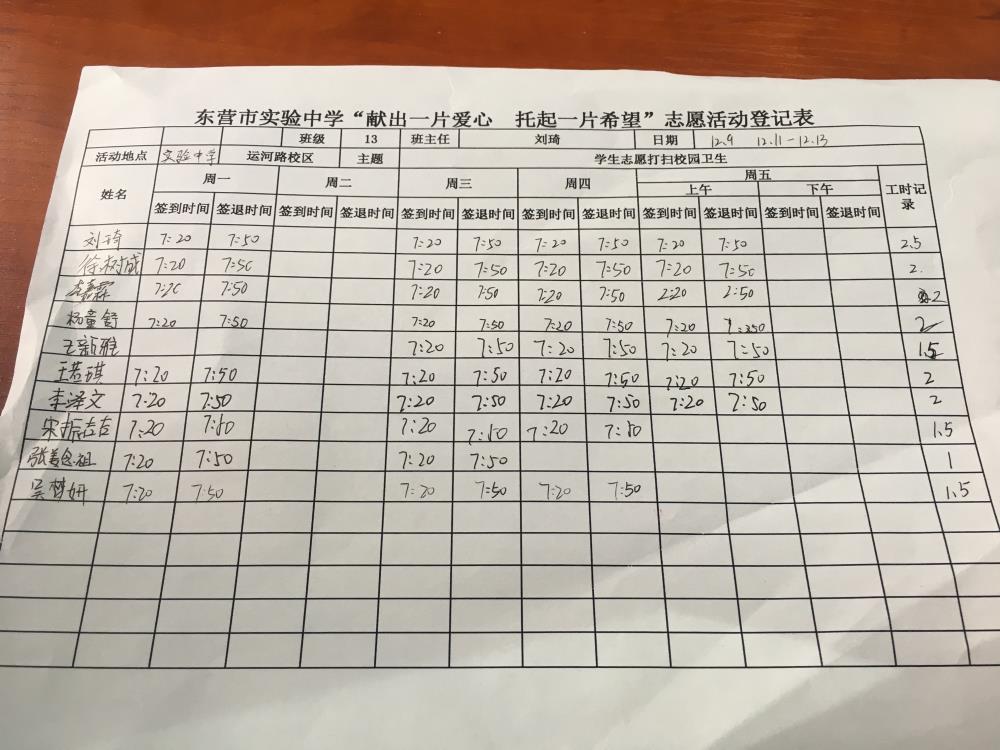 东营市实验中学“献出一片爱心 托起一片希望”志愿活动登记表
班级 13 班主任 刘琦 日期 12.9 12.11-12.13
活动地点 实验中学 运河路校区 主题 学生志愿打扫校园卫生
姓名 周一 周二 周三 周四 周五 工时记录
上午 下午
签到时间 签退时间 签到时间 签退时间 签到时间 签退时间 签到时间 签退时间 签到时间 签退时间 签到时间 签退时间
刘琦 7:20 7:50 7:20 7:50 7:20 7:50 7:20 7:50 2.5
徐树成 7:20 7:50 7:20 7:50 7:20 7:50 7:20 7:50 2
7:20 7:50 7:20 7:50 7:20 7:50 2:20 2:50 2
杨童舒 7:20 7:50 7:20 7:50 7:20 7:50 7:20 2
王新雅 7:20 7:50 7:20 7:50 7:20 7:50 1.5
王若琪 7:20 7:50 7:20 7:50 7:20 7:50 7:20 7:50 2
李泽文 7:20 7:50 7:20 7:50 7:20 7:50 7:20 7:50 2
宋振喆 7:20 7:50 7:20 7:50 7:20 7:50 1.5
7:20 7:50 7:20 7:50 1
吴梦妍 7:20 7:50 7:20 7:50 7:20 7:50 1.5